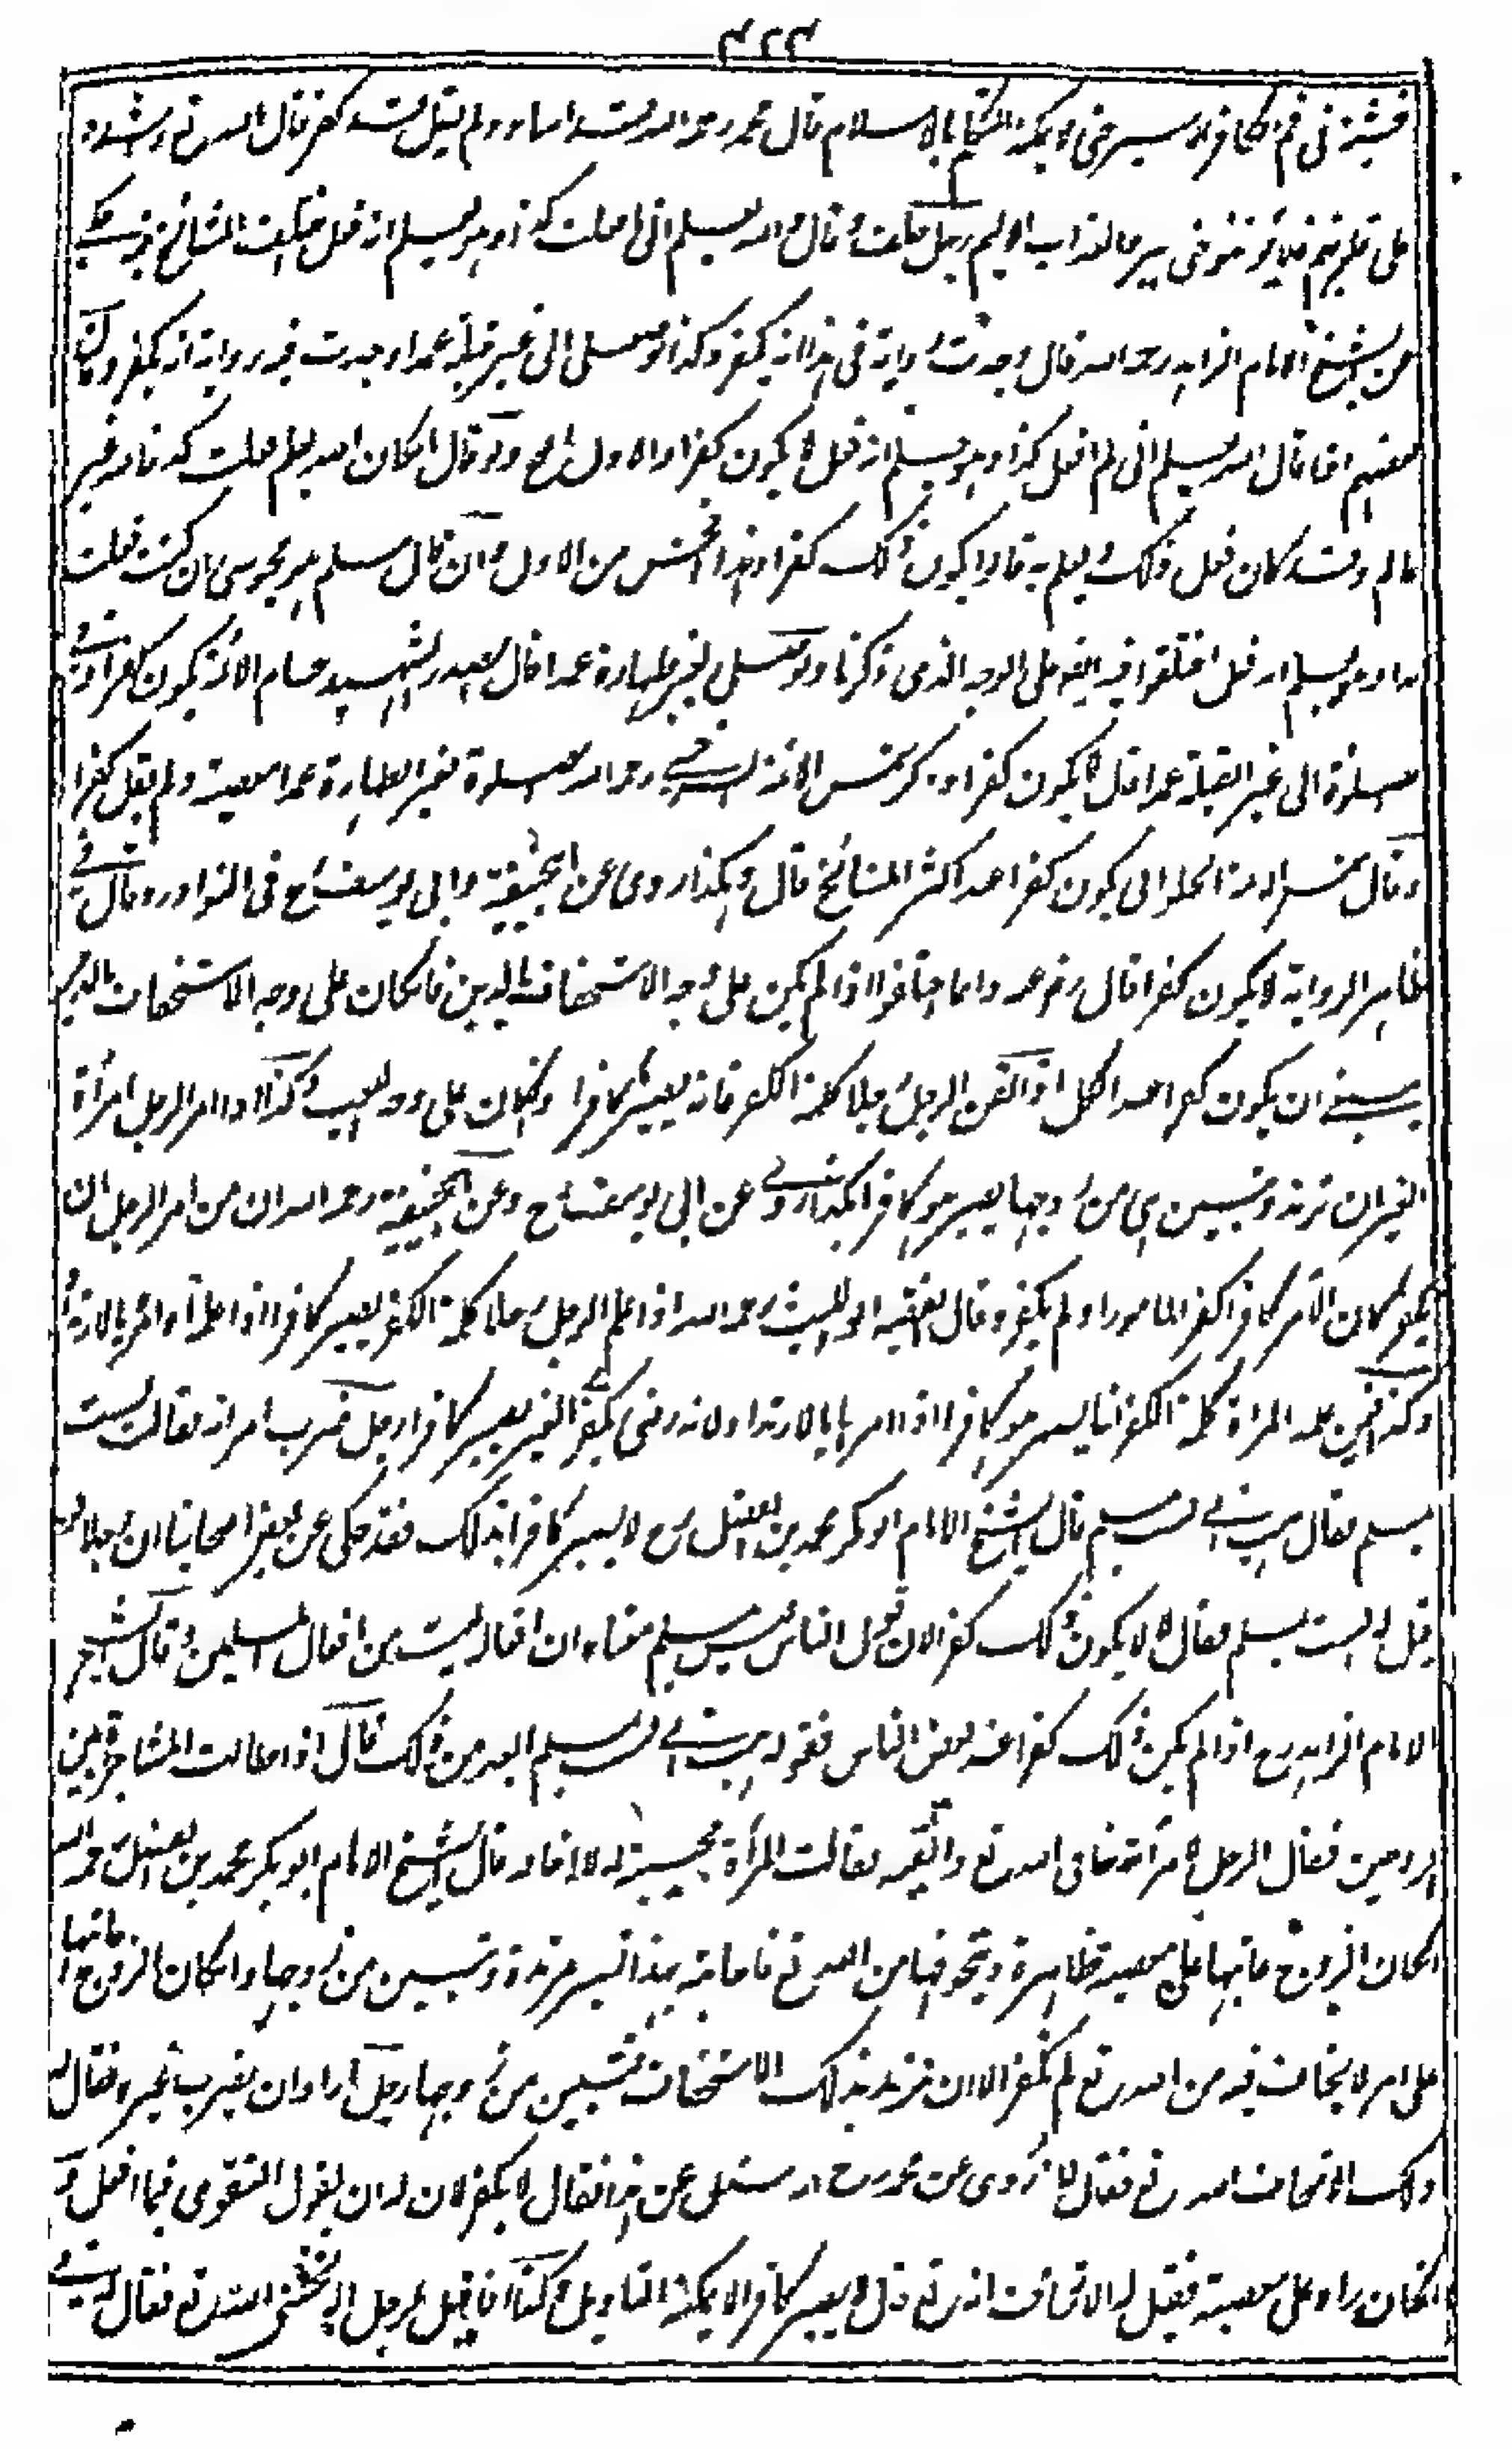 ٤٢٣
في فم الكافر الاسير حتى لا يمكنه التكلم بالاسلام قال محمد رحمه الله قد اساء ولم يقل قد كفر قال الله تع واشدد
على قلوبهم فلا يؤمنوا حتى يروا العذاب الاليم رجل حلف وقال الله يعلم اني ما فعلت كذا وهو يعلم انه فعل اختلف المشائخ فيه حكى
عن الشيخ الامام الزاهد رحمه الله قال وجدت رواية في هذا انه يكفر وكذا لو صلى الى غير قبلة عمدا وجدت فيه رواية انه يكفر وكان
بعضهم اذا قال الله يعلم اني لم افعل كذا وهو يعلم انه فعل لا يكون كفرا والاول اصح ولو قال ان كان الله يعلم فعلت كذا فانه غير
عالم وقد كان فعل ذلك ويعلم به قالوا يكون ذلك كفرا وهذا افحش من الاول وان قال مسلم هو مجوسي ان كنت فعلت
كذا وهو يعلم انه فعل اختلفوا فيه ايضا على الوجه الذي ذكرنا ولو صلى بغير طهارة عمدا قال الصدر الشهيد حسام الائمة يكون كفرا وفي
صلوة الى غير القبلة عمدا قال لا يكون كفرا وذكر شمس الائمة السرخسي رحمه الله صلوة بغير الطهارة عمدا معصية ولم يقل كفرا
وقال شمس الائمة الحلواني يكون كفرا عند اكثر المشائخ قال وهكذا روي عن ابي حنيفة وابي يوسف رح في النوادر وقال في
ظاهر الرواية لا يكون كفرا قال رضي عنه وانما اختلفوا اذا لم يكن على وجه الاستخفاف بالدين فان كان على وجه الاستخفاف بالدين
ينبغي ان يكون كفرا عند الكل اذا لقن الرجل رجلا كلمة الكفر فانه يصير كافرا وان كان على وجه اللعب وكذا اذا امر الرجل امرأة
الغير ان ترتد وتبين هي من زوجها يصير هو كافرا هكذا روي عن ابي يوسف رح وعن ابي حنيفة رحمه الله ان من امر الرجل ان
يكفر كان الآمر كافرا كفر المأمور او لم يكفر وقال الفقيه ابو الليث رحمه الله اذا علم الرجل رجلا كلمة الكفر يصير كافرا اذا علمه وامره بالارتداد
وكذا فيمن علم المرأة كلمة الكفر انما يصير هو كافرا اذا امرها بالارتداد لانه رضي بكفر الغير يصير كافرا رجل ضرب امرأته فقالت لست
بمسلم فقال قال الشيخ الامام ابو بكر محمد بن الفضل رح لا يصير كافرا بذلك فقد حكى عن بعض اصحابنا ان رجلا لو
قيل له الست بمسلم فقال لا لا يكون ذلك كفرا لان قول الناس ليس بمسلم معناه ان افعاله ليست من افعال المسلمين وقال الشيخ
الامام الزاهد رح اذا لم يكن ذلك كفرا عند بعض الناس فقوله ابعد من ذلك قال اذا طالت المشاجرة بين
الزوجين فقال الرجل لامرأته خافي الله تع واتقيه فقالت المرأة مجيبة له لا اخافه قال الشيخ الامام ابو بكر محمد بن الفضل رحمه الله
ان كان الزوج عاتبها على معصية ظاهرة ويخوفها من الله تع فاجابته بهذا تصير مرتدة وتبين من زوجها وان كان الزوج عاتبها
على امر لا يخاف فيه من الله تع لم تكفر الا ان تريد بذلك الاستخفاف فتبين من زوجها رجل اراد ان يضرب غيره فقال له
ذلك الا تخاف الله تع فقال لا روي عن محمد رح انه سئل عن هذا فقال لا يكفر لان له ان يقول التقوى فيما افعل ولو
ان كان رآه على معصية فقيل له الا تخاف الله تع فقال لا يصير كافرا لا يمكنه التاويل وكذا اذا قيل لرجل الا تخشى الله تع فقال